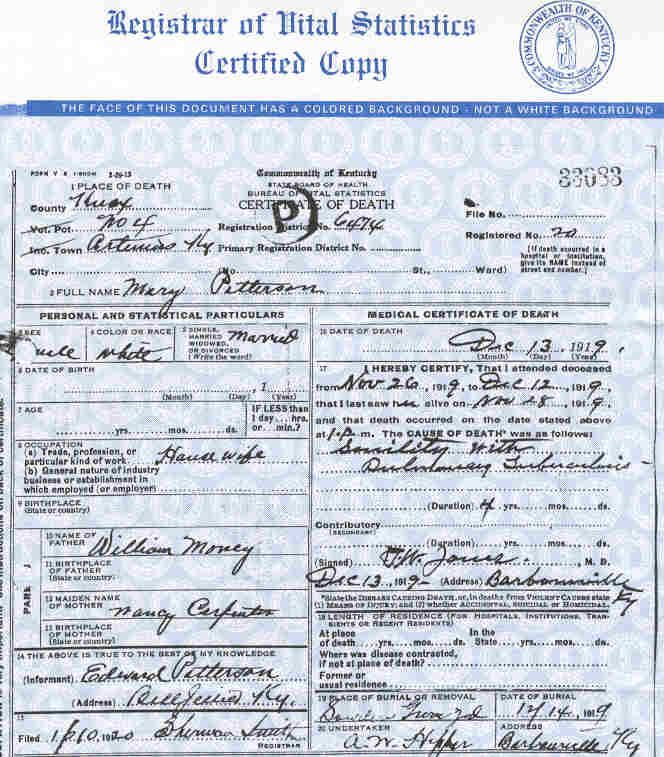 Registrar of Vital Statistics
Certified Copy
COMMONWEALTH OF KENTUCKY
THE FACE OF THIS DOCUMENT HAS A COLORED BACKGROUND · NOT A WHITE BACKGROUND
FORM V. S.
Commonwealth of Kentucky
STATE BOARD OF HEALTH
BUREAU OF VITAL STATISTICS
CERTIFICATE OF DEATH
33083
1 PLACE OF DEATH
County Knox
Vot. Pct No 4
Inc. Town Artemus Ky
City No. St., Ward)
Registration District No. 6474
Primary Registration District No.
P
File No.
Registered No. 20
(If death occurred in a
hospital or institution,
give its NAME instead of
street and number.)
2 FULL NAME Mary Patterson
PERSONAL AND STATISTICAL PARTICULARS
3 SEX
4 COLOR OR RACE
white
5 SINGLE,
MARRIED
WIDOWED,
OR DIVORCED
(Write the word)
Married
6 DATE OF BIRTH
1
(Month) (Day) (Year)
7 AGE
yrs. mos. ds.
IF LESS than
1 day... hrs.
or... min.?
8 OCCUPATION
(a) Trade, profession, or
particular kind of work House wife
(b) General nature of industry
business or establishment in
which employed (or employer)
9 BIRTHPLACE
(State or country)
10 NAME OF
FATHER William Money
11 BIRTHPLACE
OF FATHER
(State or country)
12 MAIDEN NAME
OF MOTHER Nancy Carpenter
13 BIRTHPLACE
OF MOTHER
(State or country)
14 THE ABOVE IS TRUE TO THE BEST OF MY KNOWLEDGE
(Informant) Edward Patterson
(Address) Ky.
15
Filed 1/10 1920 Sherman Smith
REGISTRAR
MEDICAL CERTIFICATE OF DEATH
16 DATE OF DEATH
Dec 13, 1919.
(Month) (Day) (Year)
17 I HEREBY CERTIFY, That I attended deceased
from Nov 26, 1919, to Dec 12, 1919,
that I last saw her alive on Nov 28, 1919,
and that death occurred on the date stated above
at 1 P. m. The CAUSE OF DEATH* was as follows:
Senility with
Pulmonary Tuberculosis
(Duration) 4 yrs. mos. ds.
Contributory
(SECONDARY)
(Duration) yrs. mos. ds.
(Signed) Jones M. D.
Dec 13, 1919 (Address) Barbourville Ky
*State the DISEASE CAUSING DEATH, or, in deaths from VIOLENT CAUSES state
(1) MEANS OF INJURY; and (2) whether ACCIDENTAL, SUICIDAL or HOMICIDAL.
18 LENGTH OF RESIDENCE (FOR HOSPITALS, INSTITUTIONS, TRANSIENTS OR RECENT RESIDENTS)
At place In the
of death yrs. mos. ds. State yrs. mos. ds.
Where was disease contracted,
if not at place of death?
Former or
usual residence
19 PLACE OF BURIAL OR REMOVAL
DATE OF BURIAL
12/14, 1919
20 UNDERTAKER
A. W. Hopper
ADDRESS
Barbourville Ky